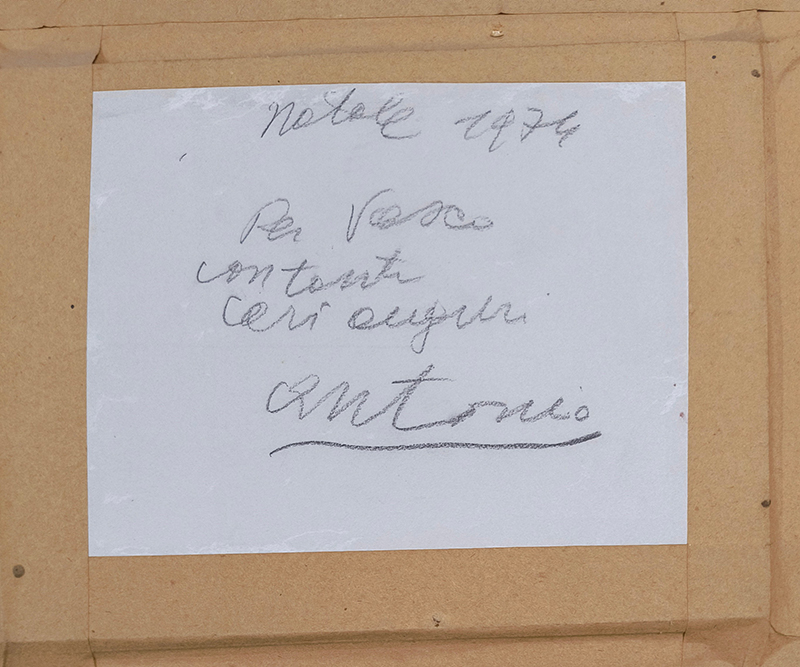 Natale 1974
Per Vasco
con tanti
cari auguri
Antonio